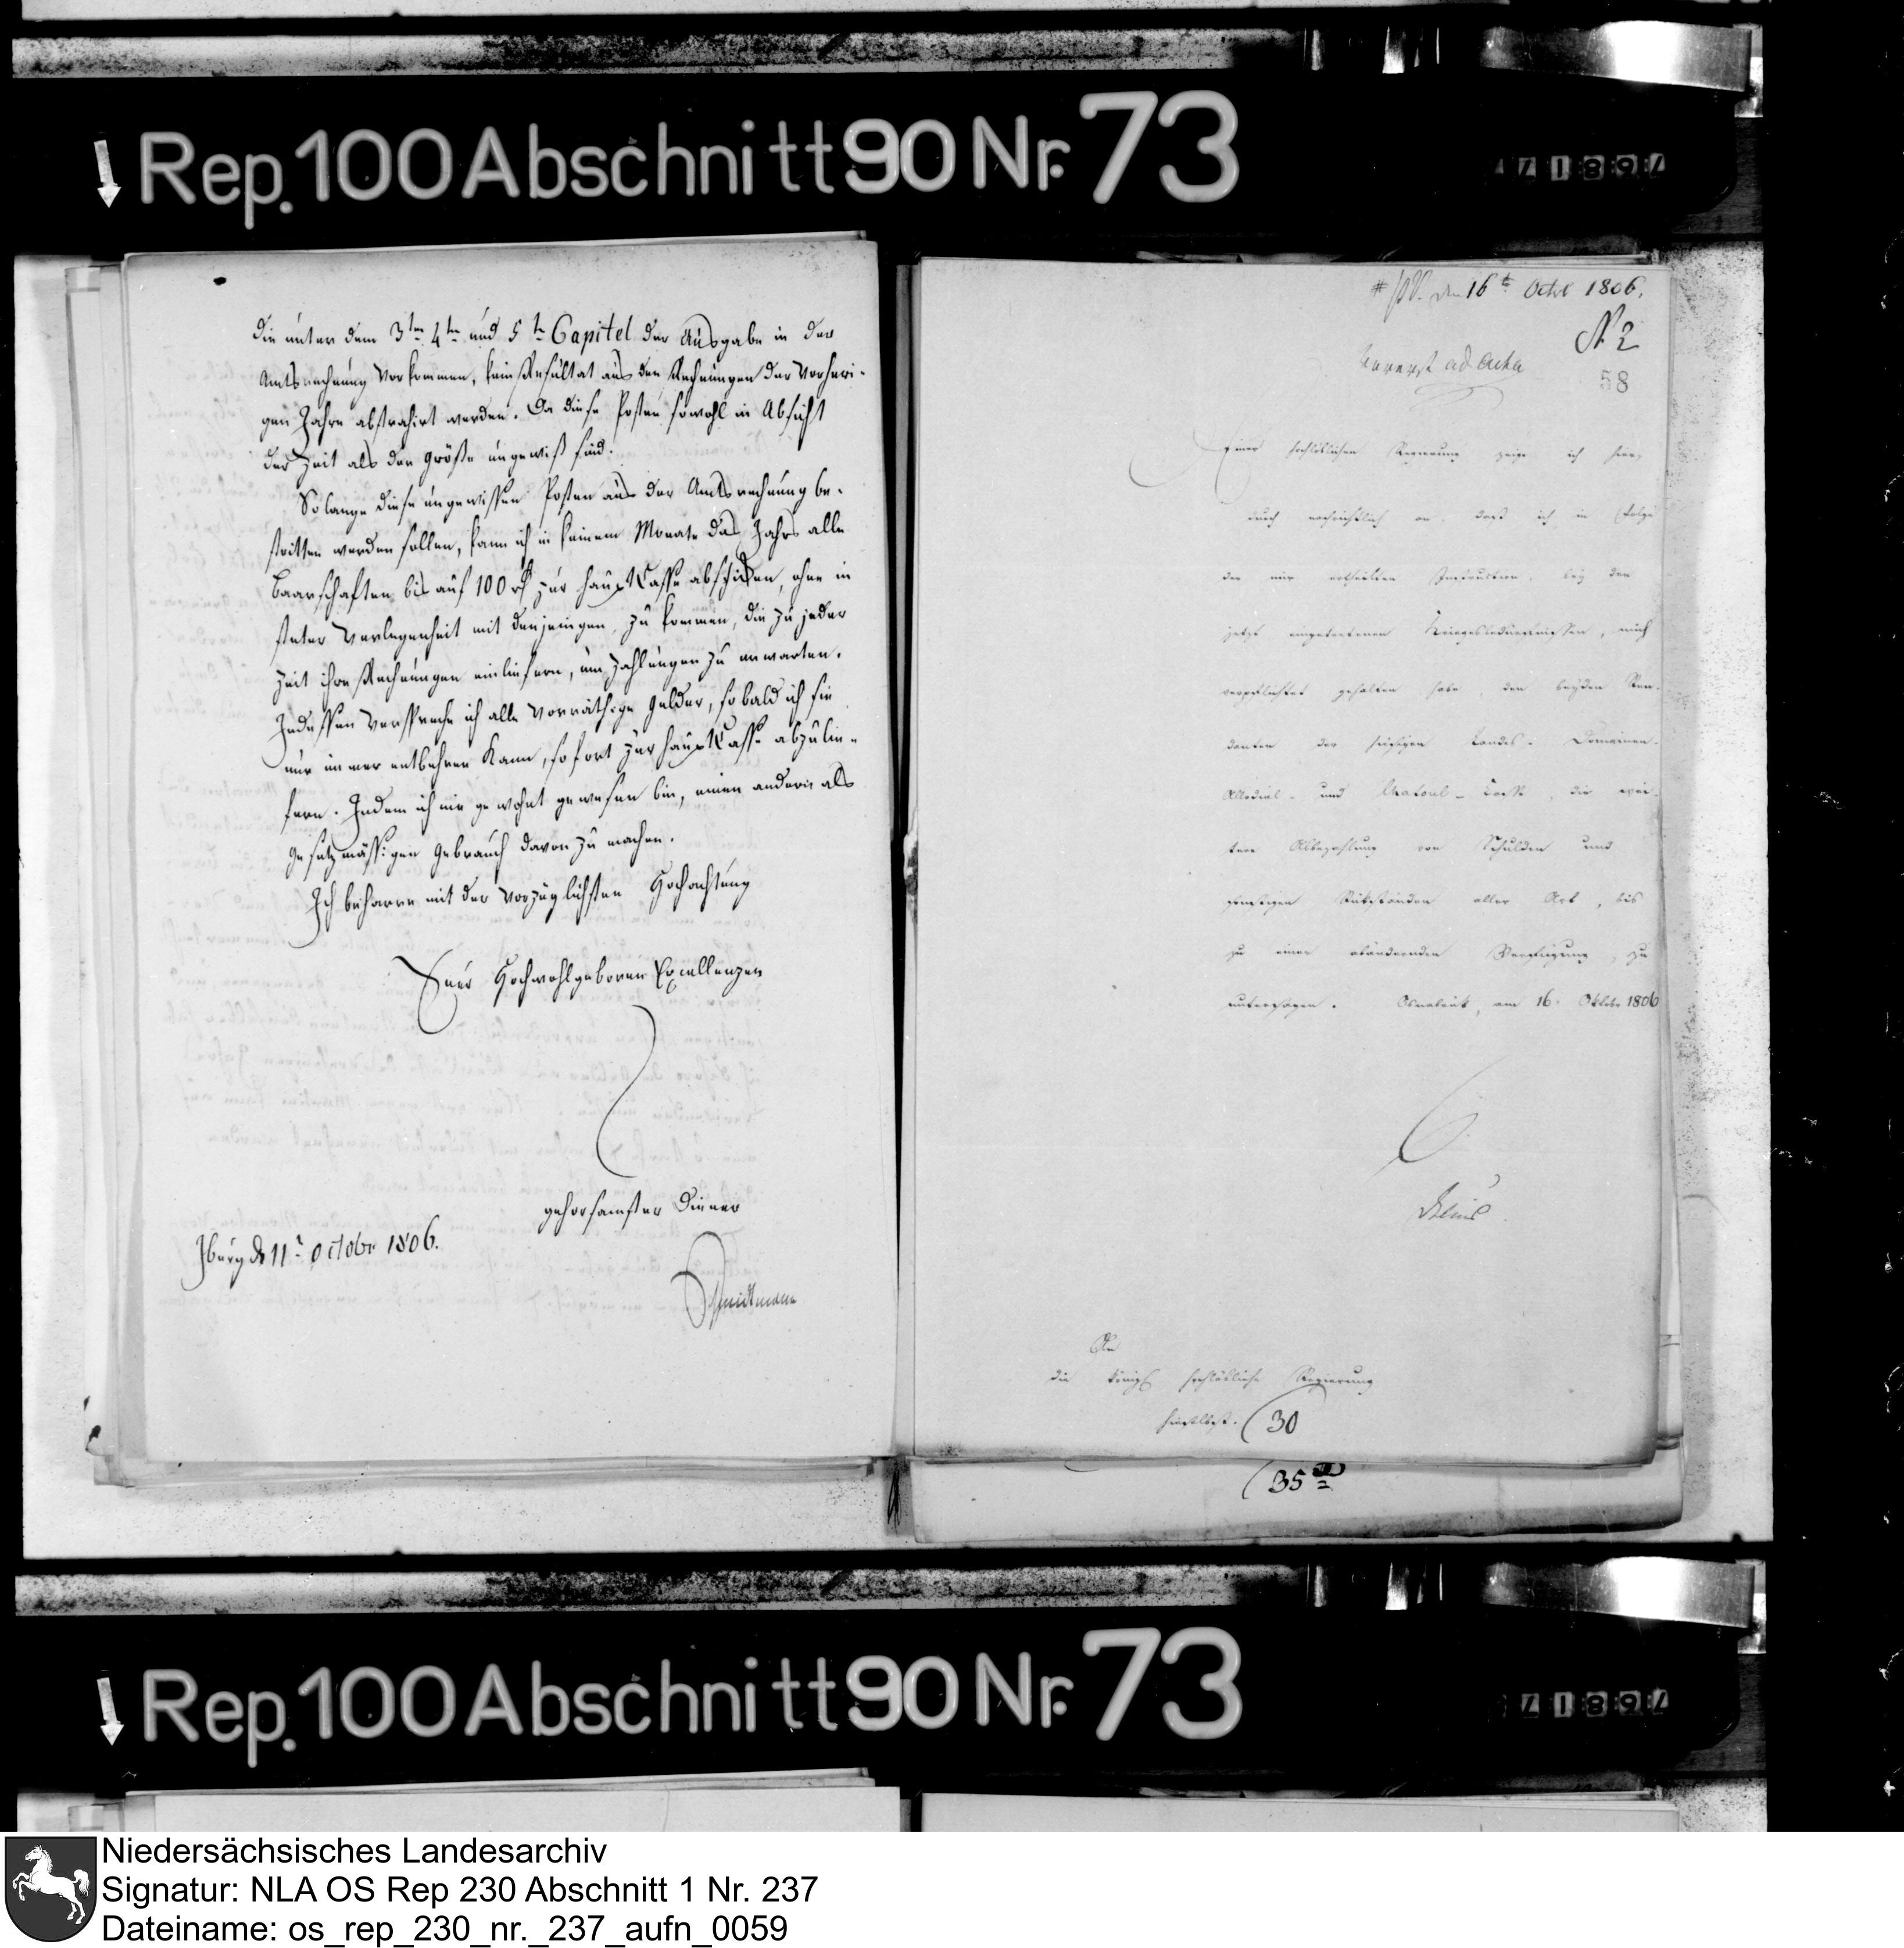 Rep. 100 Abschnitt 90 Nr. 73
die unter dem 3ten 4ten und 5ten Capitel der Ausgabe in der
Amtsrechnung vorkommen, kein Resultat aus den Rechnungen der vorheri-
gen Jahre abstrahirt werden. Da diese Posten sowohl in Absicht
der Zeit als der Größe ungewiß sind.
So lange diese ungewissen Posten aus der Amtsrechnung be-
stritten werden sollen, kann ich in keinem Monate des Jahrs alle
Baarschaften bis auf 100 rt zur HauptCasse abschicken, ohne in
steter Verlegenheit mit denjenigen zu kommen, die zu jeder
Zeit ihre Rechnungen einliefern, um Zahlungen zu erwarten.
Indessen verspreche ich alle vorräthige Gelder, so bald ich sie
nur immer entbehren kann, sofort zur HauptCasse abzulie-
fern. Indem ich nie gewohnt gewesen bin, einen andern als
gesetzmässigen Gebrauch davon zu machen.
Ich beharre mit der vorzüglichsten Hochachtung
Euer Hochwohlgeboren Excellenzen
gehorsamster Diener
Iburg d 11t Octobr 1806.
den 16t Octbr 1806.
N 2
ad acta
58
Einer hochlöblichen Regierung zeige ich hier-
durch nachrichtlich an, daß ich in Folge
der mir ertheilten Instruction, bey den
jetzt eingetretenen Kriegesbedürfnissen, mich
verpflichtet gehalten habe den beyden Ren-
danten der hiesigen Landes- Domainen-
Allodial- und Casse, die wei-
tere Abbezahlung von Schulden und
sonstigen Rückständen aller Art, bis
zu einer abändernden Verfügung, zu
untersagen. Osnabrück, am 16. Oktbr 1806
An
die Königl hochlöbliche Regierung
hieselbst. (30
(35
Rep. 100 Abschnitt 90 Nr. 73
Niedersächsisches Landesarchiv
Signatur: NLA OS Rep 230 Abschnitt 1 Nr. 237
Dateiname: os_rep_230_nr._237_aufn_0059